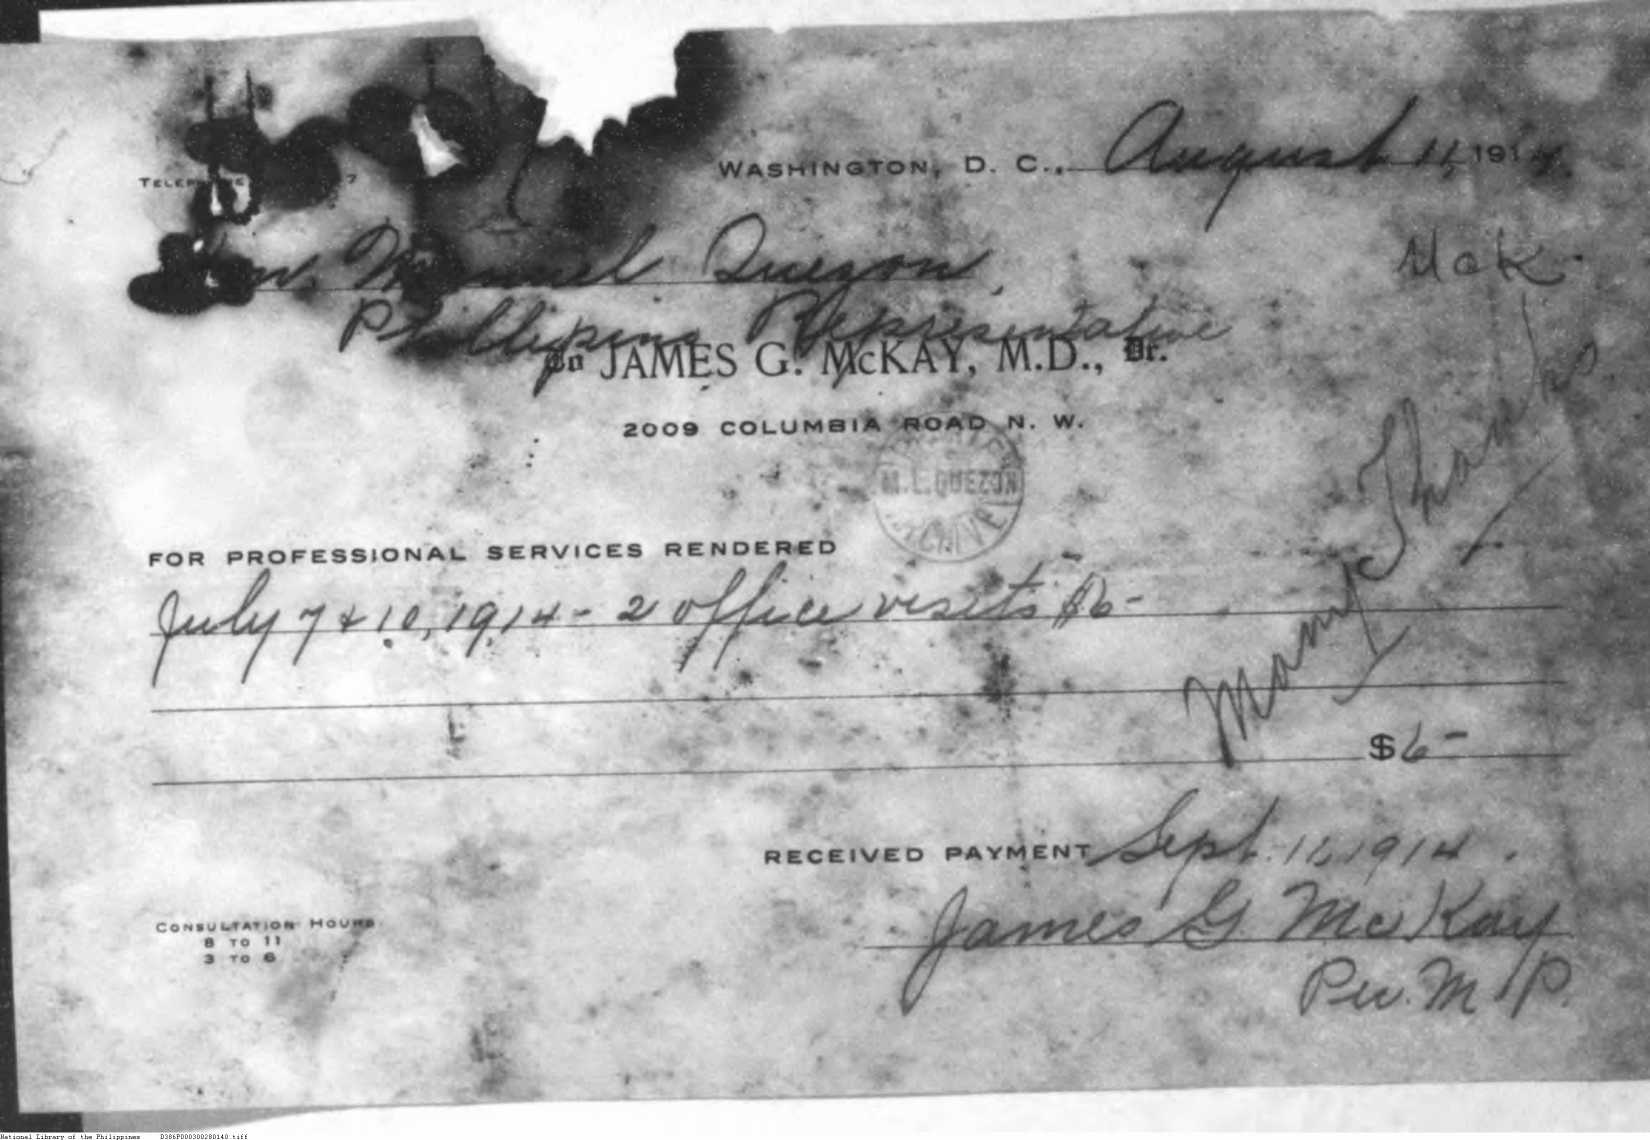 WASHINGTON, D. C., August 11, 1914.
TELEPHONE 7
Hon. Manuel Quezon,
McK.
Phillipine Representative
To JAMES G. McKAY, M.D., Dr.
2009 COLUMBIA ROAD N. W.
M. L. QUEZON
ARCHIVES
FOR PROFESSIONAL SERVICES RENDERED
July 7 & 10, 1914 - 2 office visits $6-
Many Thanks
$6-
RECEIVED PAYMENT Sept. 11, 1914.
James G. McKay
Per. M P.
CONSULTATION HOURS
8 TO 11
3 TO 6
National Library of the Philippines D386P000300280140.tiff